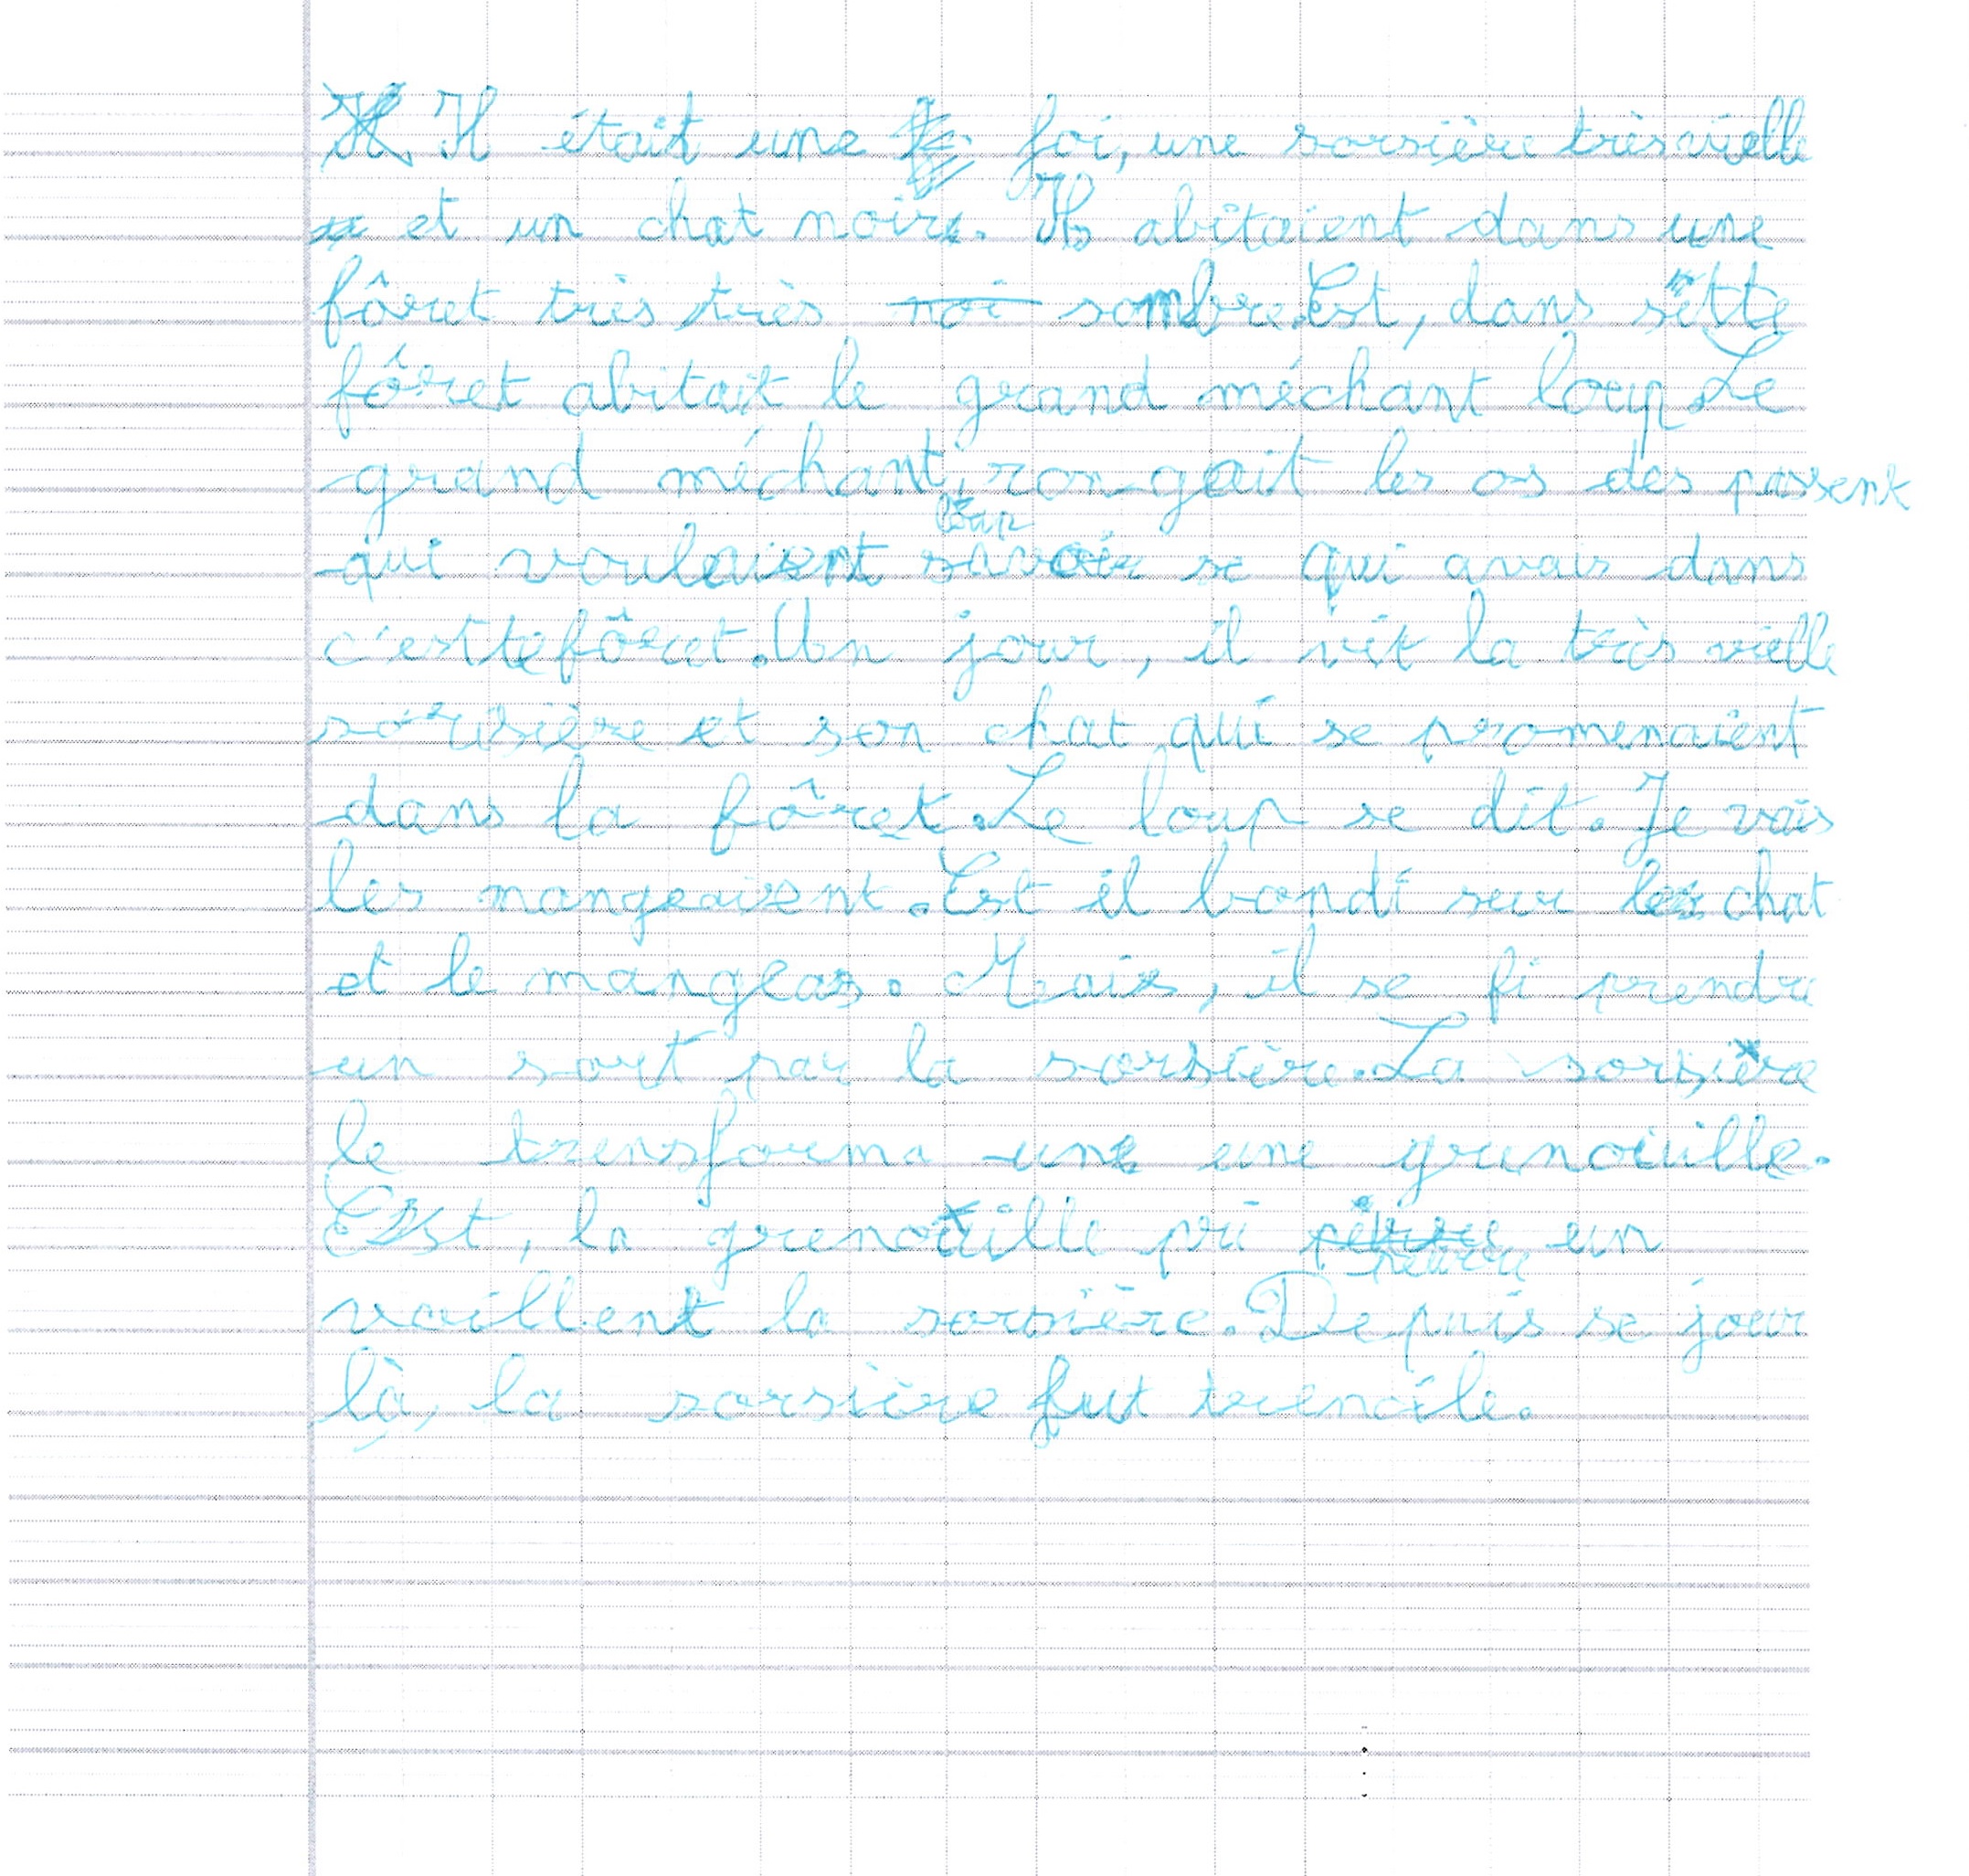 Il était une foi, une sorsière très vielle
et un chat noir. Ils abitaient dans une
fôret très très noi sombre. Est, dans sette
fôret abitait le grand méchant loup. Le
grand méchant loup rongait les os des passent
qui voulaient savoir se qui avais dans
c'estte fôret. Un jour, il vit la très vielle
sorsière et son chat qui se promenaient
dans la fôret. Le loup se dit. Je vais
les mangeaient. Est il bondi sur le chat
et le mangeas. Mais, il se fi prendre
un sort par la sorsière. La sorsière
le trensforma une une grenouille.
Est, la grenouille pri peure un
vaillent la sorsière. Depuis se jour
là, la sorsière fut trencile.